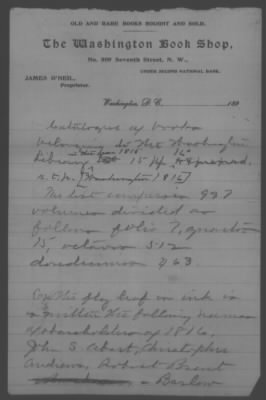 OLD AND RARE BOOKS BOUGHT AND SOLD.
The Washington Book Shop,
No. 509 Seventh Street, N. W.,
UNDER SECOND NATIONAL BANK.
JAMES O'NEIL,
Proprietor.
Washington, D. C. 189
Catalogue of books
belonging to the Washington
Library 1816 15 pp
s. t. p. [Washington 1816]
The list comprises 937
volumes divided as
follows folio 7, quartos
15, octavos 512
duodecimos 463
On the fly leaf in ink is
written the following names
of shareholders of 1816.
John S. Abert, Christopher
Andrews, Robert Brent
Barlow